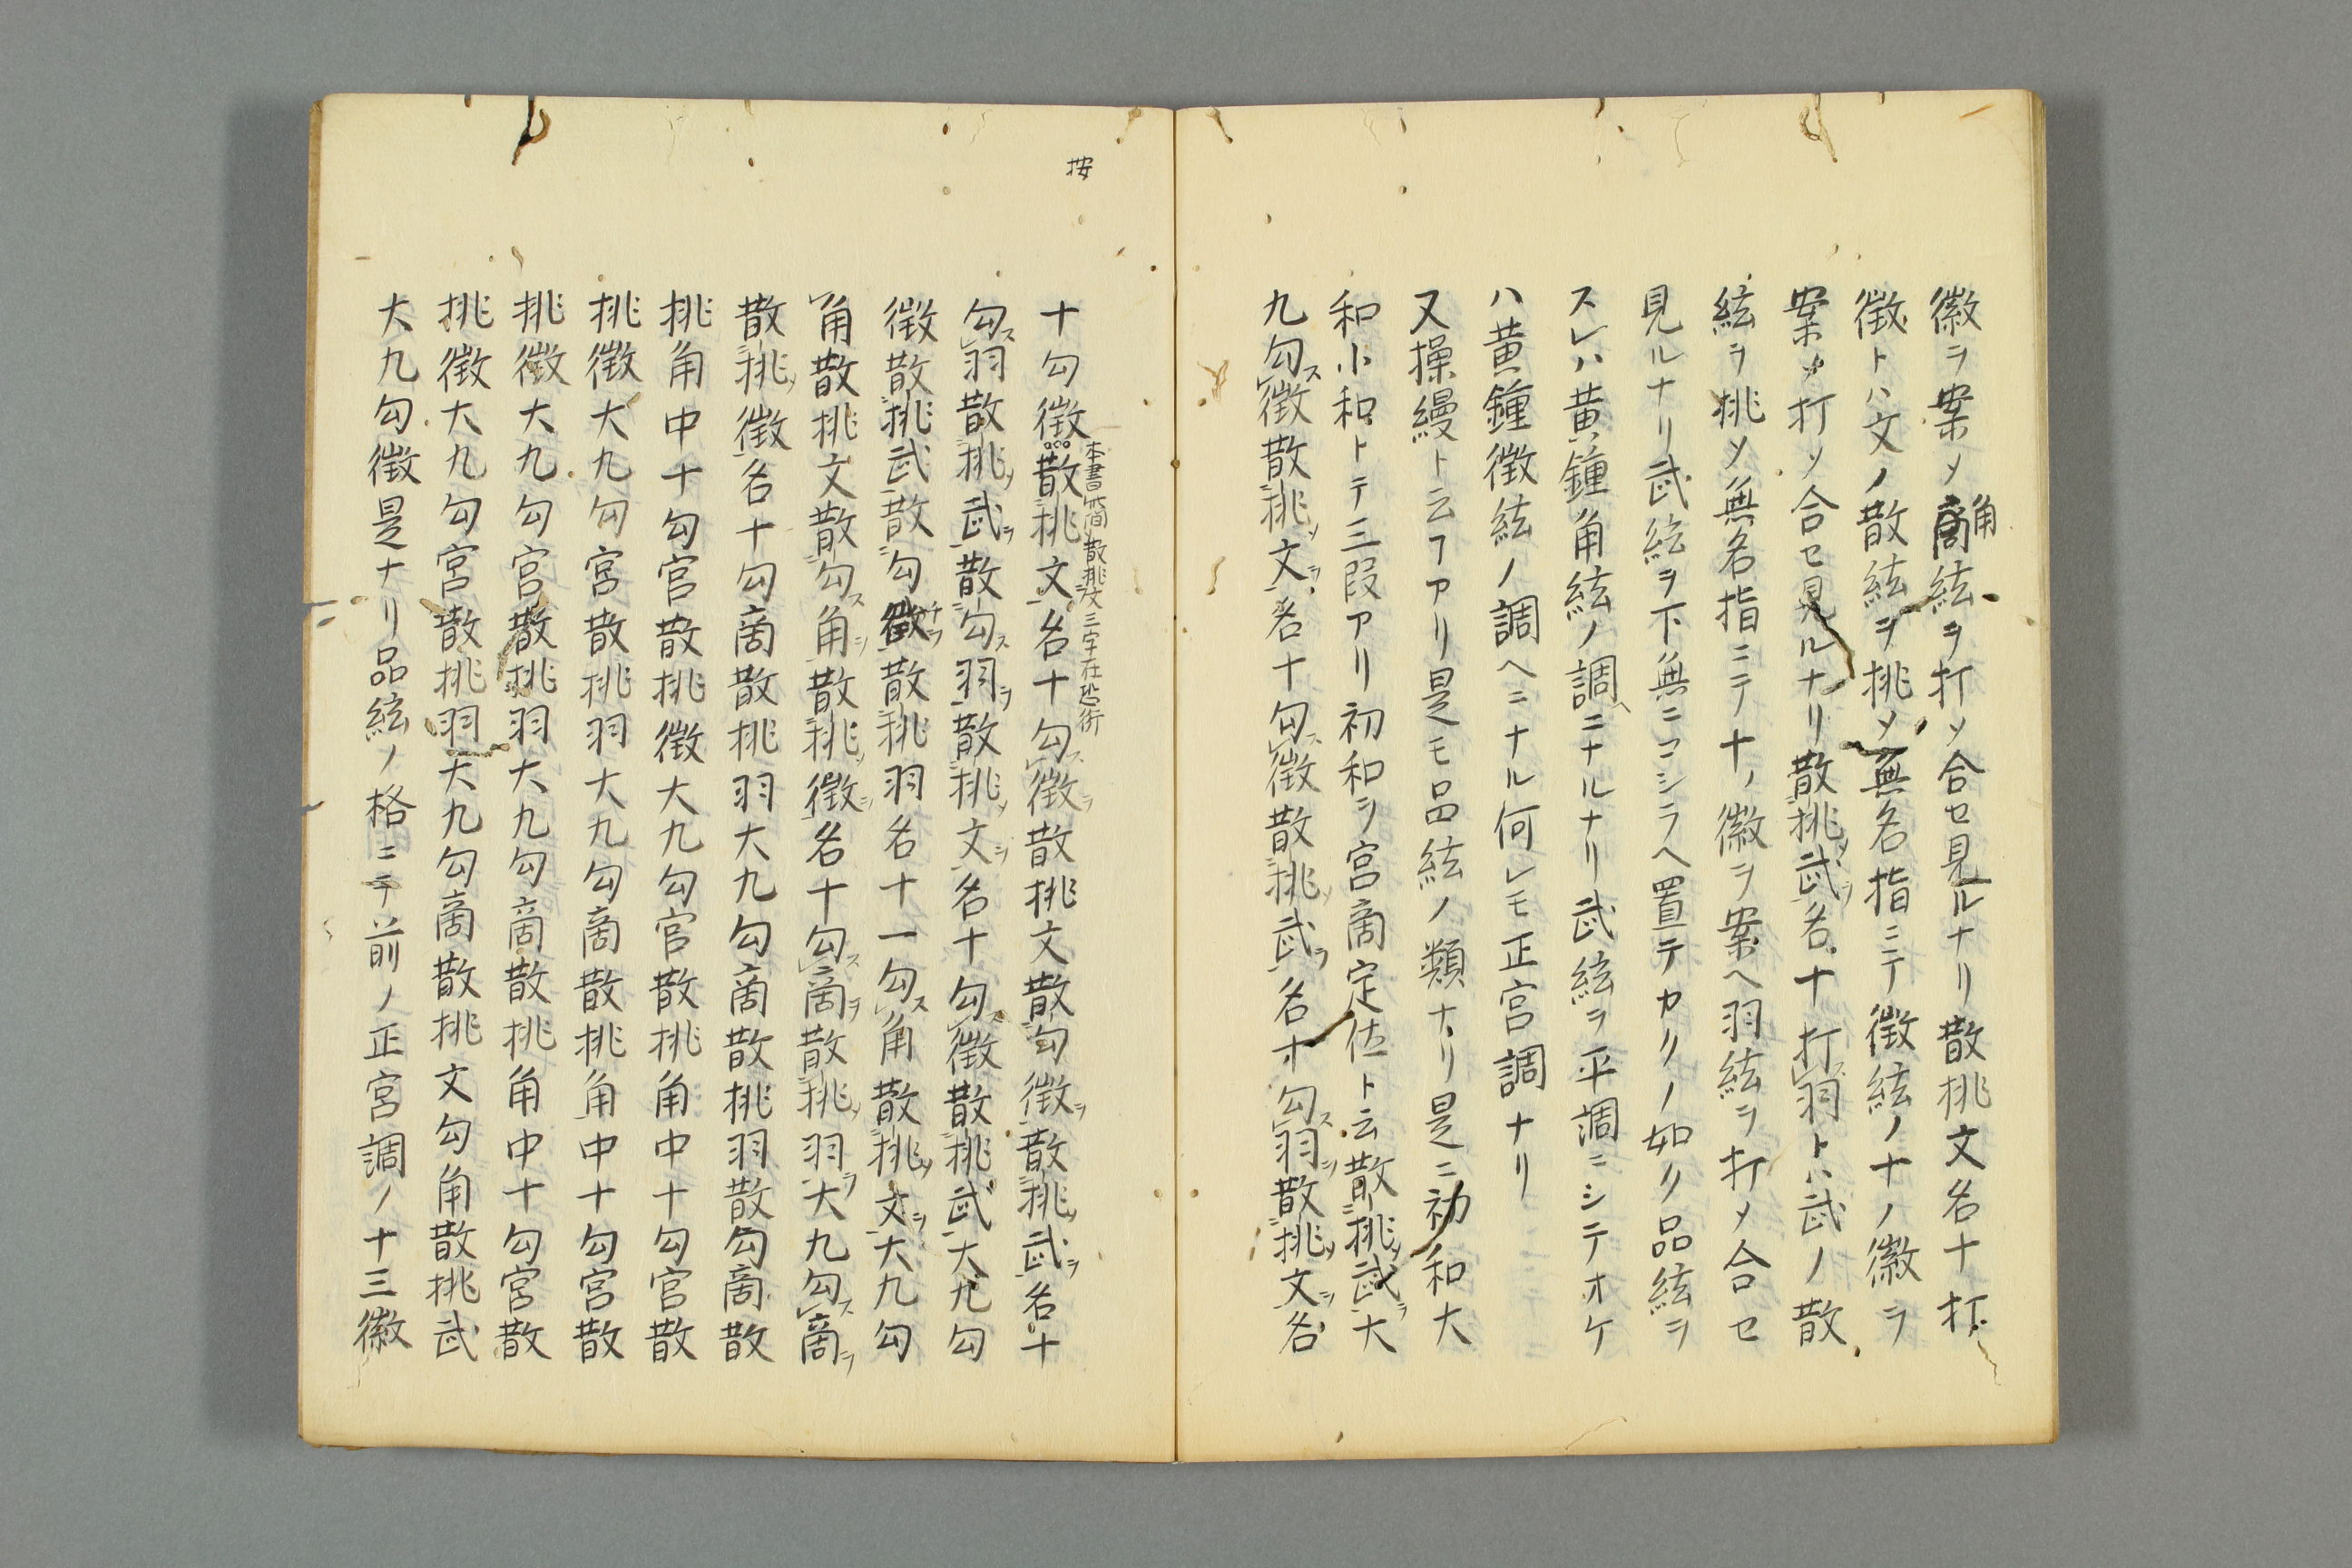 徽ヲ案ソ角絃ヲ打ソ合セ見ルナリ散挑文名十打
徴トハ文ノ散絃ヲ挑ソ無名指ニテ徴絃ノ十ノ徽ヲ
案ソ打ソ合セ見ルナリ散挑武名十打羽トハ武ノ散
絃ヲ挑ソ無名指ニテ十ノ徽ヲ案ヘ羽絃ヲ打ソ合セ
見ルナリ武絃ヲ下無ニコシラヘ置テカクノ如ク品絃ヲ
スレハ黄鐘角絃ノ調ニナルナリ武絃ヲ平調ニシテオケ
ハ黄鐘徴絃ノ調ヘニナル何レモ正宮調ナリ
又操縵ト云フアリ是モ品絃ノ類ナリ是ニ初和大
和小和トテ三段アリ初和ヲ宮商定位ト云散挑武大
九勾徴散挑文名十勾徴散挑武名十勾羽散挑文名
按
十勾徴散挑文名十勾徴散挑文散勾徴散挑武名十
本書簡散挑文三字在恐衍
勾羽散挑武散勾羽散挑文名十勾徴散挑武大九勾
徴散挑武散勾徴散挑羽名十一勾角散挑文大九勾
角散挑文散勾角散挑徴名十勾商散挑羽大九勾商
散挑徴名十勾商散挑羽大九勾商散挑羽散勾商散
挑角中十勾宮散挑徴大九勾宮散挑角中十勾宮散
挑徴大九勾宮散挑羽大九勾商散挑角中十勾宮散
挑徴大九勾宮散挑羽大九勾商散挑角中十勾宮散
挑徴大九勾宮散挑羽大九勾商散挑文勾角散挑武
大九勾徴是ナリ品絃ノ格ニテ前ノ正宮調ノ十三徽